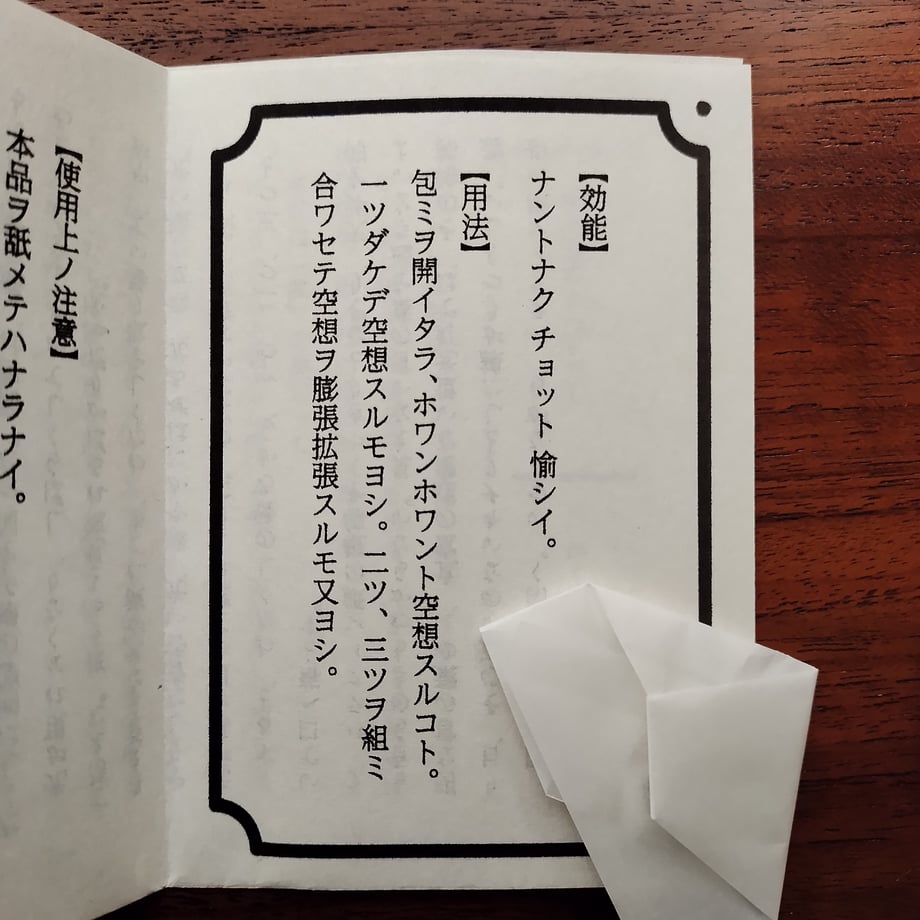 【効能】
ナントナク チョット 愉シイ。
【用法】
包ミヲ開イタラ、ホワンホワント空想スルコト。
一ツダケデ空想スルモヨシ。二ツ、三ツヲ組ミ
合ワセテ空想ヲ膨張拡張スルモ又ヨシ。
【使用上ノ注意】
本品ヲ舐メテハナラナイ。